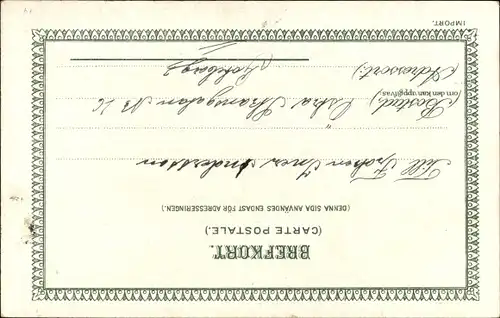 BREFKORT.
(CARTE POSTALE.)
(DENNA SIDA ANVÄNDES ENDAST FÖR ADRESSERINGEN.)
Till Fröken Iner Andersson
(Bostad) Östra Skansgatan No 26
(om den kan uppgifvas)
(Adressort:) Göteborg
IMPORT.